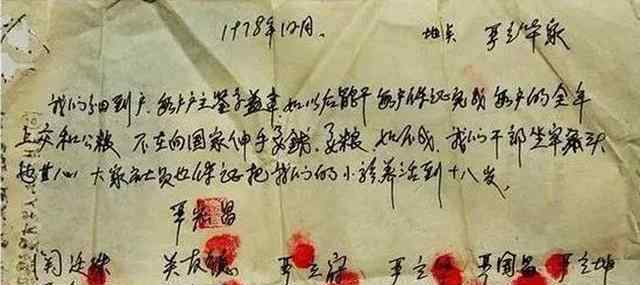 1978年12月. 地点 严立华家
我们分田到户,每户户主签字盖章,如以后能干,每户保证完成每户的全年
上交和公粮.不在向国家伸手要钱,要粮.如不成,我们干部坐牢杀头
也甘心,大家社员也保证把我们的小孩养活到十八岁,
严宏昌
关廷珠 关友德 严立 严立 严国昌 严立坤